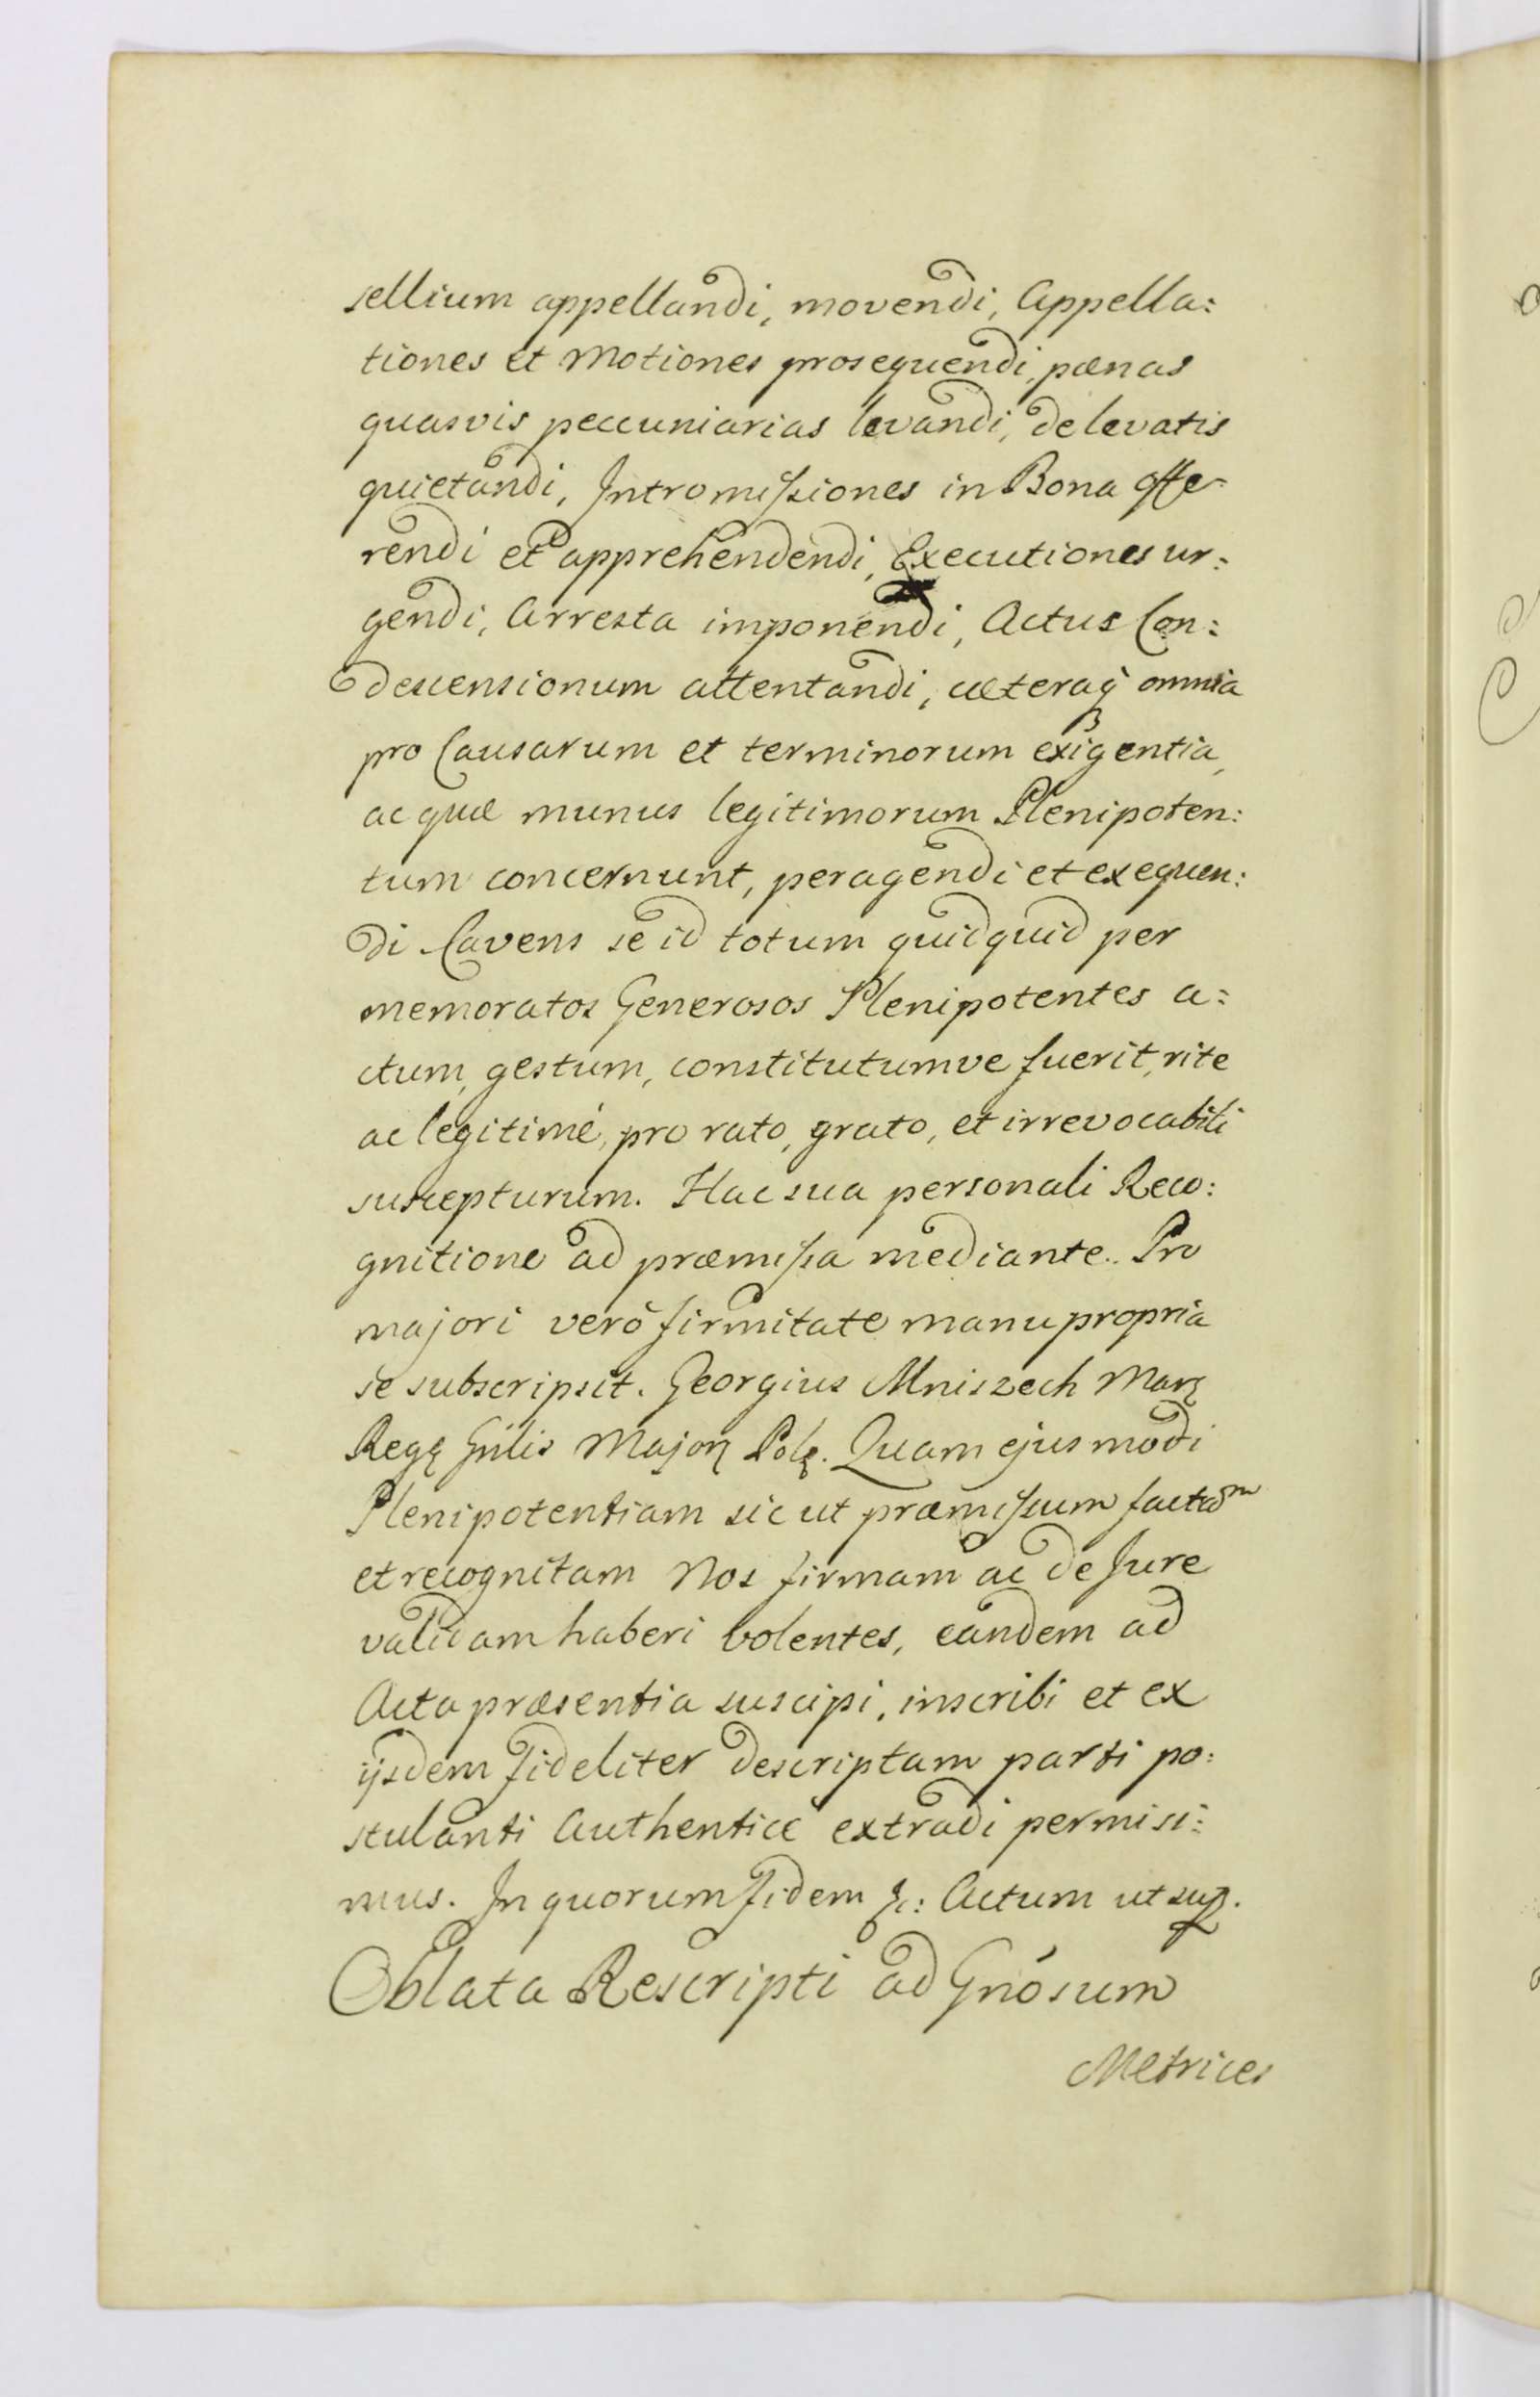 sellium appellandi, movendi, Appella:
tiones et Motiones prosequendi, pænas
quasvis peccuniarias levandi, de levatis
quietandi, Intromissiones in Bona offe-
rendi et apprehendendi, Executiones ur:
gendi, Arresta imponendi, Actus Con:
descensionum attentandi, cæteraq̀ omnia
pro Causarum et terminorum exigentia,
ac quæ munus legitimorum Plenipoten:
tum concernunt, peragendi et exequen:
di Cavens se id totum quidquid per
memoratos Generosos Plenipotentes a:
ctum, gestum, constitutumve fuerit, rite
ac legitimé, pro rato, grato, et irrevocabili
suscepturum. Hac sua personali Reco:
gnitione ad præmissa mediante. Pro
majori verò firmitate manu propria
se subscripsit. Georgius Mniszech Marꝫ
Regꝫ Gnlis Majorꝫ Polꝫ. Quam ejusmodi
Plenipotentiam sic ut præmissum factam
et recognitam Nos firmam ac de Jure
validam haberi volentes, eandem ad
Acta præsentia suscipi, inscribi et ex
ijsdem fideliter descriptam parti po:
stulanti Authenticè extradi permisi:
mus. In quorum fidem &c: Actum ut sup.
Oblata Rescripti ad Gnósum
Metrices